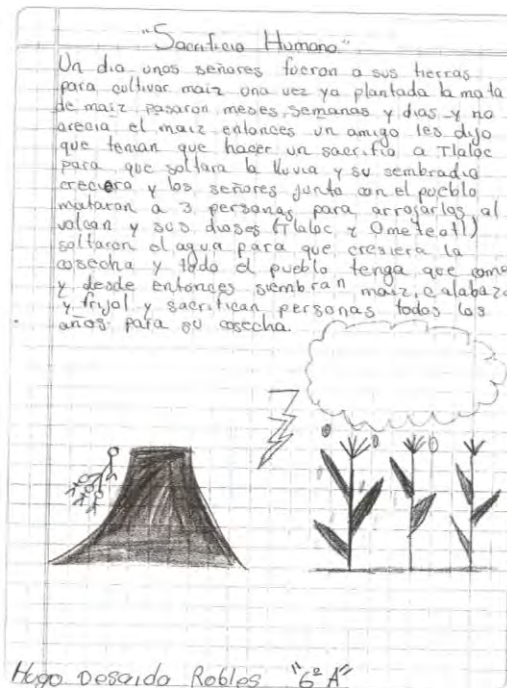 "Sacrificio Humano"
Un dia unos señores fueron a sus tierras
para cultivar maiz una vez ya plantada la mata
de maiz pasaron meses, semanas y dias y no
arecia el maiz entonces un amigo les dijo
que tenian que hacer un sacrifio a Tlaloc
para que soltara la lluvia y su sembradio
creciera y los señores junto con el pueblo
mataron a 3 personas para arrojarlos al
volcan y sus dioses (Tlaloc y Ometeotl)
soltaron el agua para que cresiera la
cosecha y todo el pueblo tenga que come
y desde entonces siembran maiz, calabaza
y frijol y sacrifican personas todos los
años para su cosecha.
Hugo Robles "6º A"